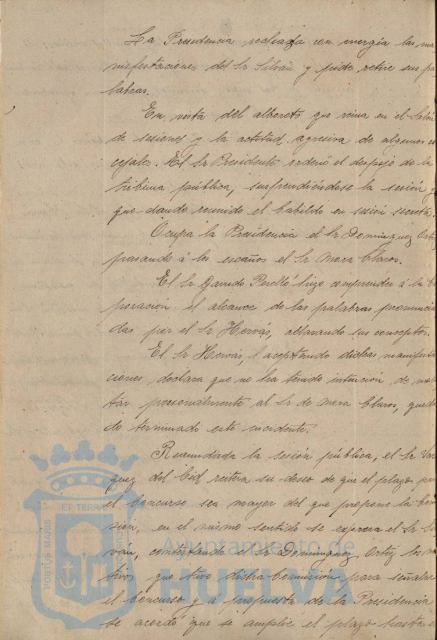 La Presidencia rechaza con energía las ma
nifestaciones del Sr Silván y pide retire sus pa
labras.
En vista del alboroto que reina en el Salón
de sesiones y la actitud agresiva de algunos con
cejales. El Sr Presidente ordenó el despejo de la
tribuna pública, suspendiéndose la sesión y
quedando reunido el Cabildo en sesión secreta.
Ocupa la Presidencia el Sr Dominguez Ortiz
pasando á los escaños el Sr Mora Claros.
El Sr Garrido Perelló hizo comprender á la Cor
poración el alcance de las palabras pronuncia
das por el Sr Hervás, aclarando sus conceptos.
El Sr Hervás, aceptando dichas manifesta
ciones, declara que no ha tenido intención de
personalmente al Sr de Mora Claros, quedan
do terminado este incidente.
Reanudada la sesión pública, el Sr
del Cid reitera su deseo de que el plazo para
el concurso sea mayor del que propone la Comi
sión, en el mismo sentido se expresa el Sr Sil
ván, contestando el Sr Dominguez Ortiz los mo
tivos que tuvo dicha Comisión para señalar
el concurso y á propuesta de la Presidencia
se acordó que se amplíe el plazo hasta
PORTUS MARIS ET TERRAE CUSTODIA
Ayuntamiento de
HUELVA